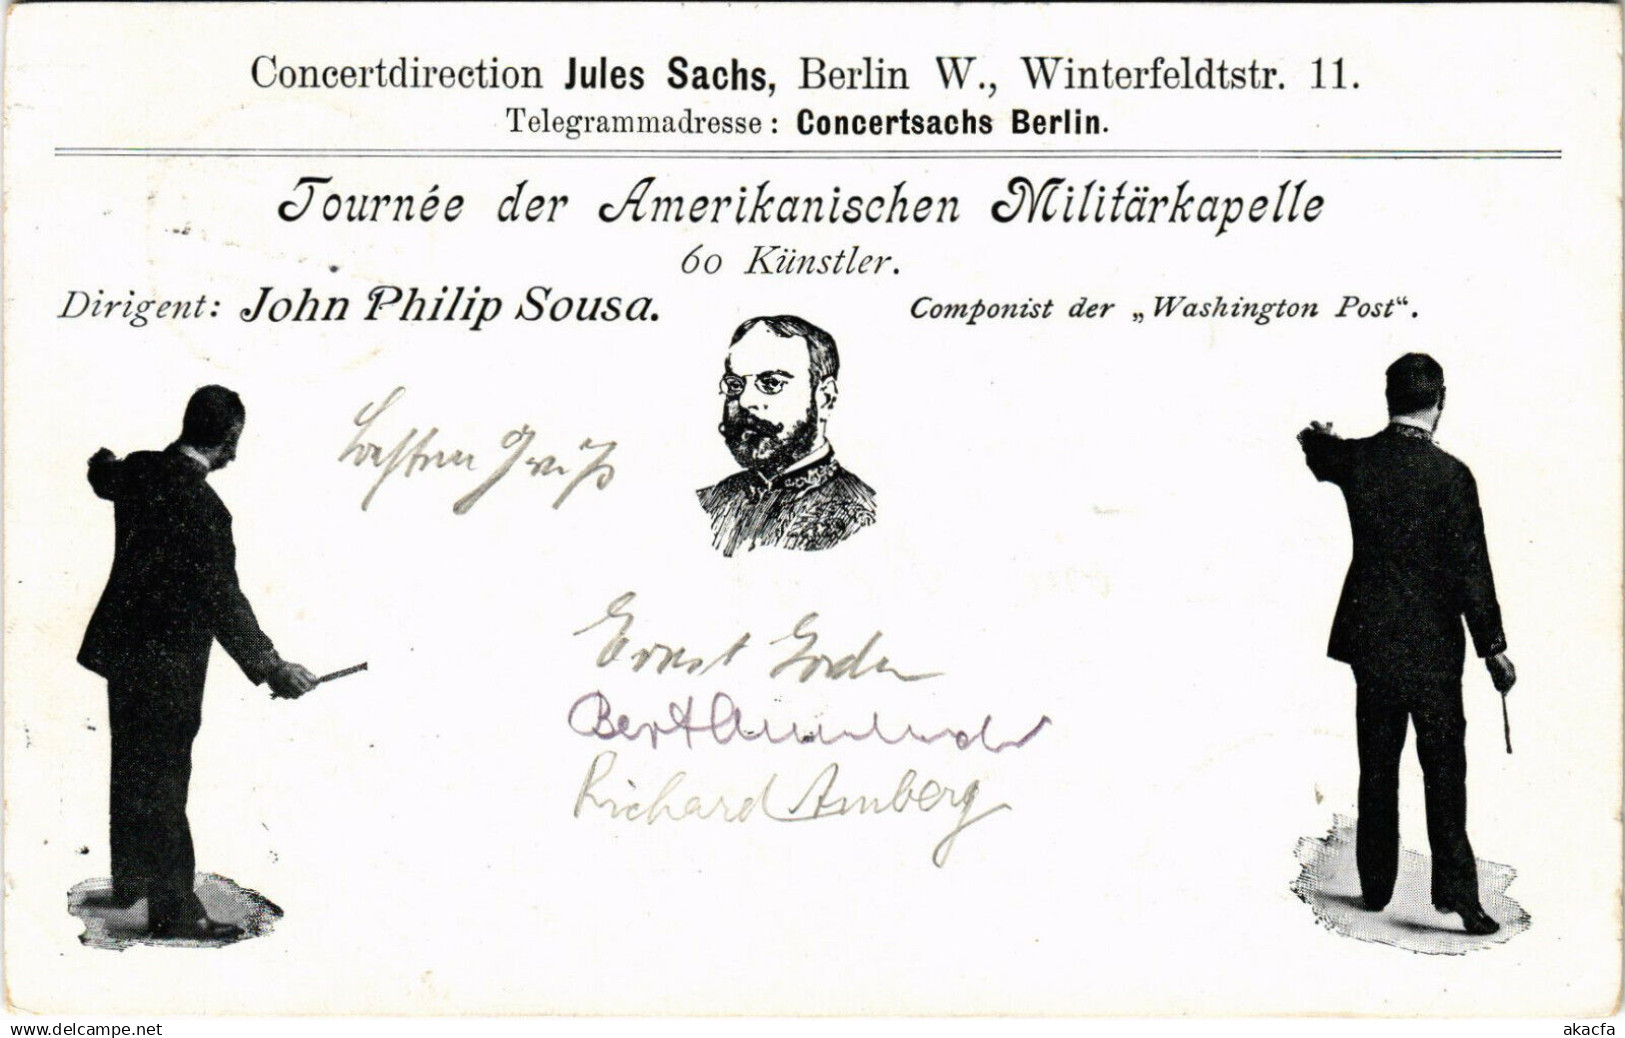 Concertdirection Jules Sachs, Berlin W., Winterfeldtstr. 11.
Telegrammadresse: Concertsachs Berlin.
Tournée der Amerikanischen Militärkapelle
60 Künstler.
Dirigent: John Philip Sousa.
Componist der „Washington Post“.
Besten Gruß
Ernst
Richard Amberg
www.delcampe.net
akacfa